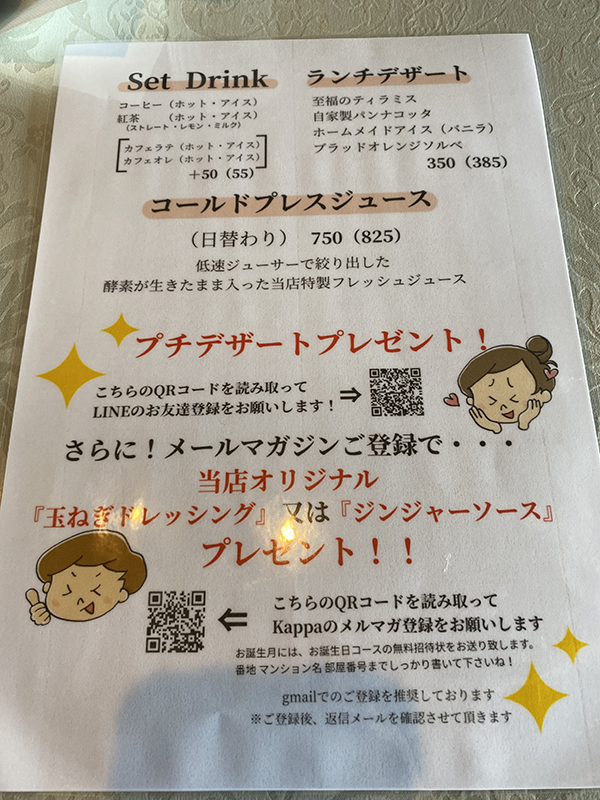 Set Drink
コーヒー（ホット・アイス）
紅茶　　（ホット・アイス）
（ストレート・レモン・ミルク）
カフェラテ（ホット・アイス）
カフェオレ（ホット・アイス）
＋50（55）
ランチデザート
至福のティラミス
自家製パンナコッタ
ホームメイドアイス（バニラ）
ブラッドオレンジソルベ
350（385）
コールドプレスジュース
（日替わり）　750（825）
低速ジューサーで絞り出した
酵素が生きたまま入った当店特製フレッシュジュース
プチデザートプレゼント！
こちらのQRコードを読み取って
LINEのお友達登録をお願いします！
⇒
さらに！メールマガジンご登録で・・・
当店オリジナル
『玉ねぎドレッシング』又は『ジンジャーソース』
プレゼント！！
⇐
こちらのQRコードを読み取って
Kappaのメルマガ登録をお願いします
お誕生月には、お誕生日コースの無料招待状をお送り致します。
番地 マンション名 部屋番号までしっかり書いて下さいね！
gmailでのご登録を推奨しております
※ご登録後、返信メールを確認させて頂きます